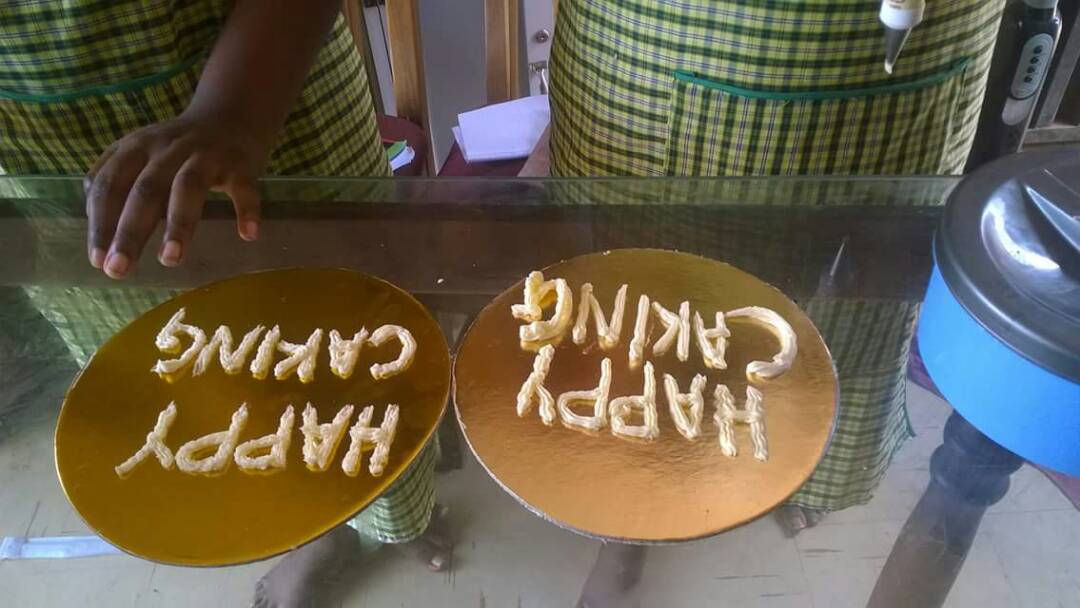 HAPPY
CAKING
HAPPY
CAKING